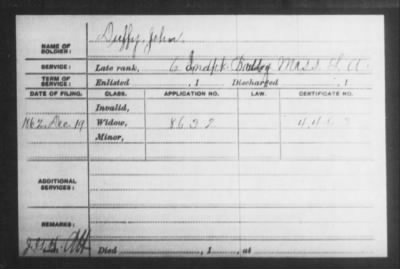 NAME OF SOLDIER: Duffy, John.
SERVICE: Late rank, 6 Indpt. Batt'y Mass L. A.
TERM OF SERVICE: Enlisted , 1 Discharged , 1
DATE OF FILING. CLASS. APPLICATION NO. LAW. CERTIFICATE NO.
Invalid,
1862, Dec 19 Widow, 8632
Minor,
ADDITIONAL SERVICES:
REMARKS:
Died , 1 , at